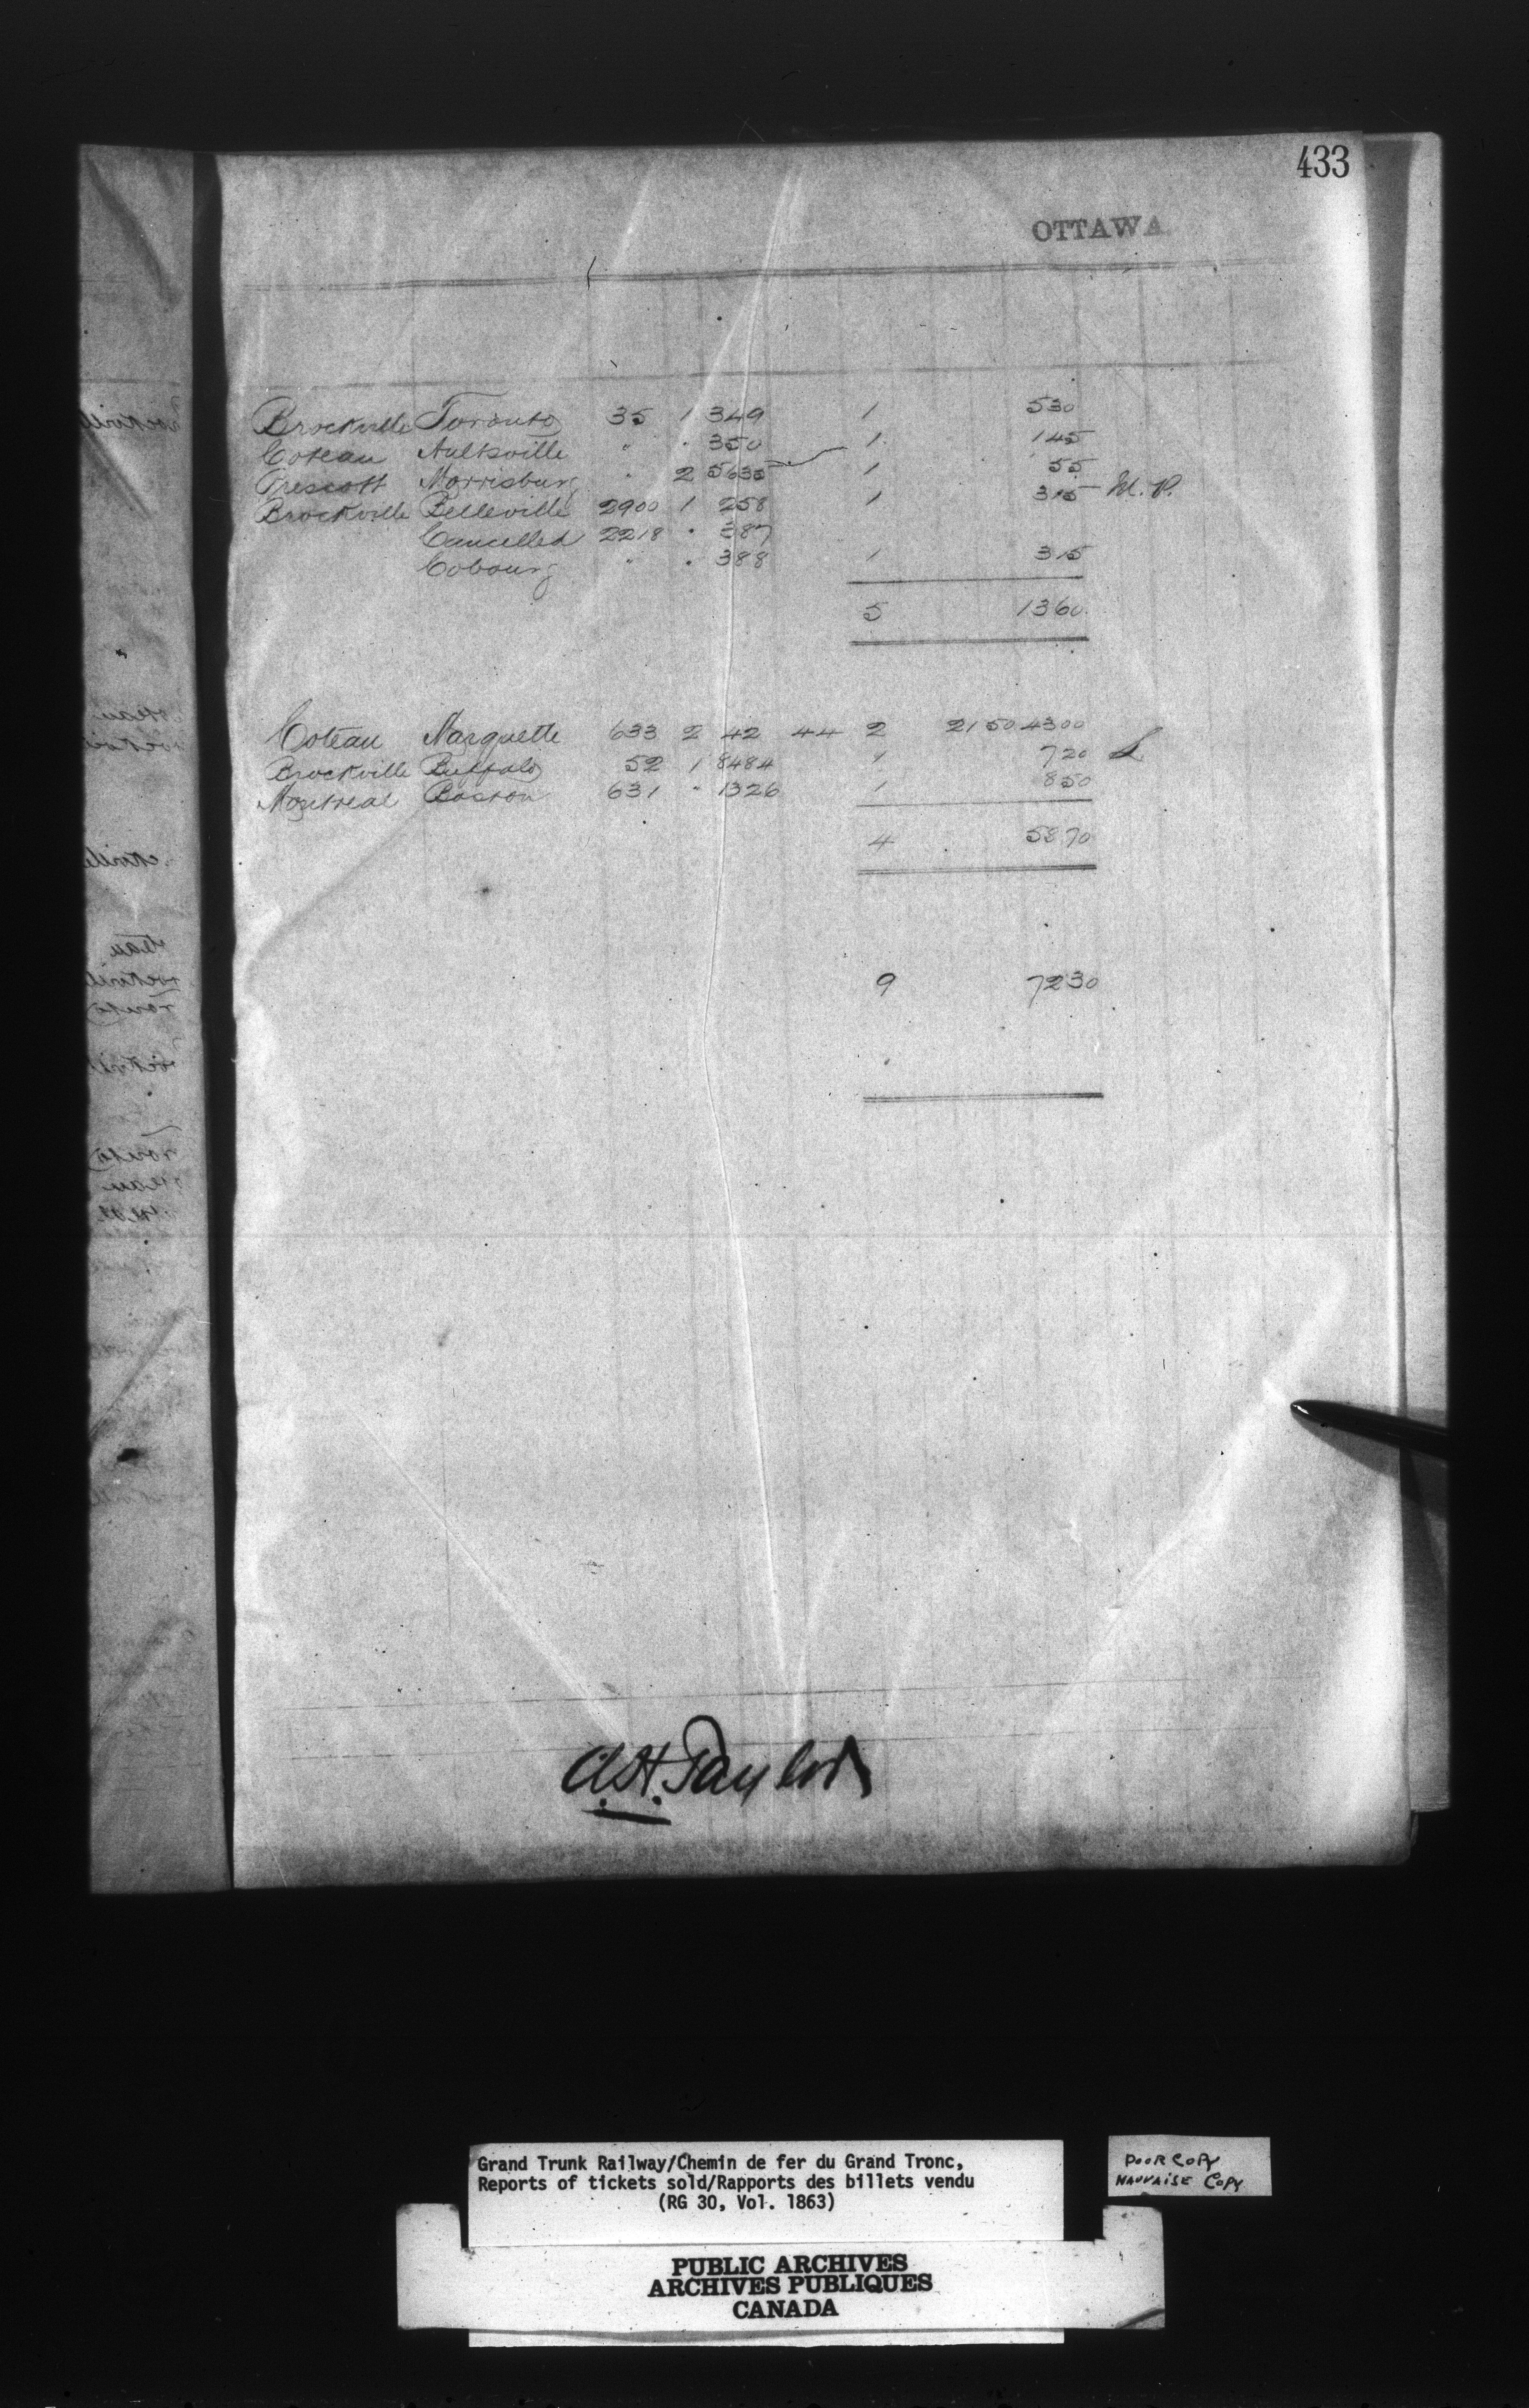 433
OTTAWA
Brockville Toronto 35 1 349 1 530
Coteau Aultsville " " 350 1 145
Prescott Morrisburg " 2 5635 1 55
Brockville Belleville 2900 1 258 1 315 M.P.
Cancelled 2218 " 387
Cobourg " " 388 1 315
5 1360
Coteau Marquette 633 2 42 44 2 2150 4300
Brockville Buffalo 52 1 8484 1 720
Montreal Boston 631 " 1326 1 850
4 5870
9 7230
A.H. Taylor
Grand Trunk Railway/Chemin de fer du Grand Tronc,
Reports of tickets sold/Rapports des billets vendu
(RG 30, Vol. 1863)
POOR COPY
MAUVAISE COPY
PUBLIC ARCHIVES
ARCHIVES PUBLIQUES
CANADA